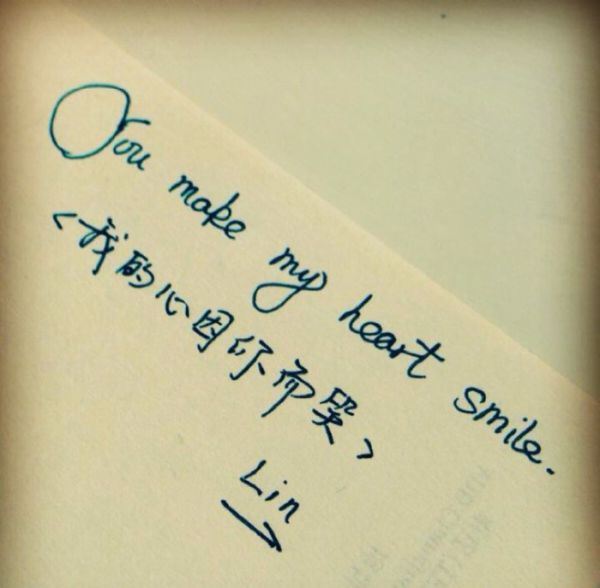 You make my heart smile.
<我的心因你而笑>
Lin